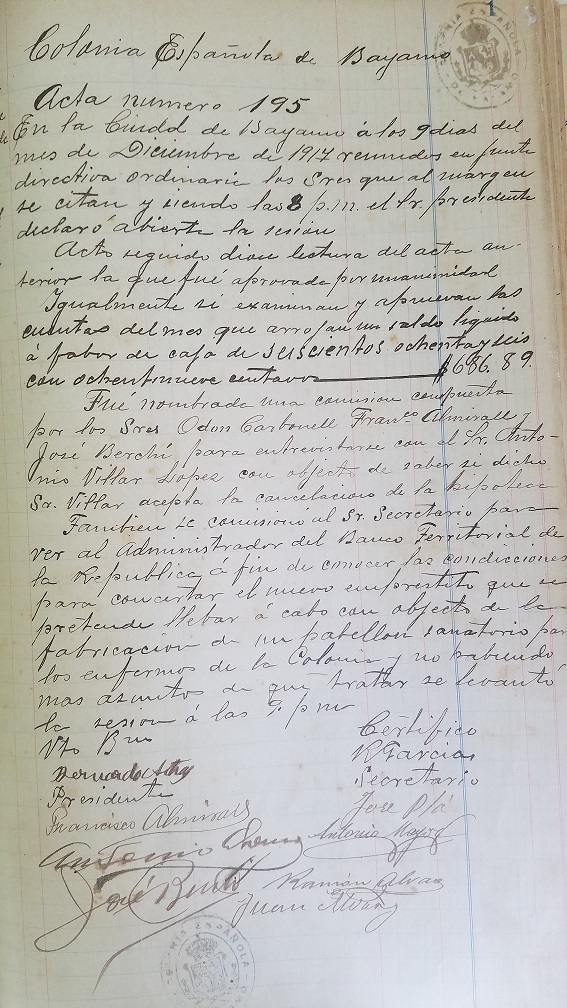 1
COLONIA ESPAÑOLA
Colonia Española de Bayamo
Acta numero 195
En la Ciudd de Bayamo á los 9 dias del
mes de Diciembre de 1917 reunidos en junta
directiva ordinaria los Sres que al margen
se citan y siendo las 8 p.m. el Sr. presidente
declaró abierta la sesión
Acto seguido diose lectura del acta an-
terior la que fué aprovada por unanimidad
Igualmente se examinan y aprueban las
cuentas del mes que arrojan un saldo liquido
á fabor de caja de seiscientos ochenta y seis
con ochentinueve centavos $686.89.
Fué nombrada una comision compuesta
por los Sres Odon Carbonell Franco Almirall y
José Berchi para entrevistarse con el Sr. Anto-
nio Villar Lopez con objecto de saber si dicho
Sr. Villar acepta la cancelacion de la hipoteca
Tambien se comisionó al Sr. Secretario para
ver al Administrador del Banco Territorial de
la Republica á fin de conocer las condicciones
para concertar el nuevo emprestito que se
pretende llebar á cabo con objecto de la
fabricacion de un pabellon sanatorio para
los enfermos de la Colonia y no habiendo
mas asuntos de que tratar se levantó
la sesion á las 9 pm
Vto Bno
Certifico
Bernardo
R Garcia
Presidente
Secretario
Francisco Almirall
Jose Plá
Antonio
Antonio Mayo
José
Ramón Alvarez
Juan Alvarez
COLONIA ESPAÑOLA